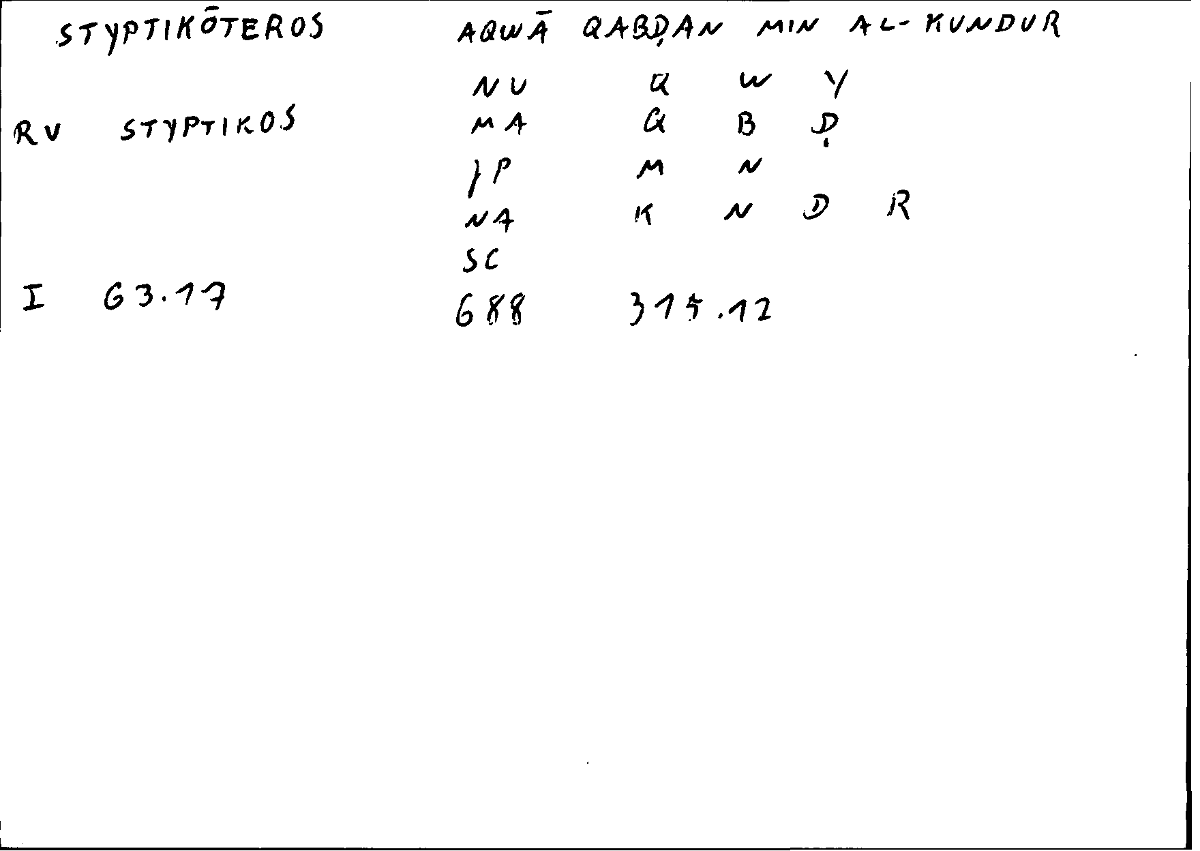 STYPTIKŌTEROS AQWĀ QABḌAN MIN AL-KUNDUR
NU Q W Y
RU STYPTIKOS MA Q B Ḍ
JP M N
NA K N D R
SC
I 63.17 688 315.12